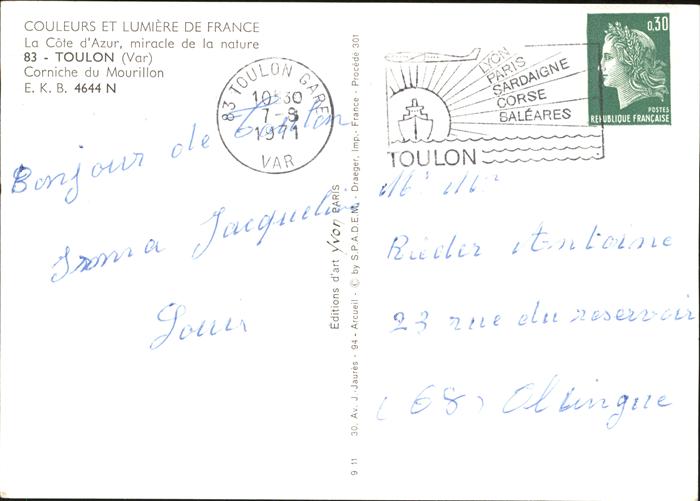 COULEURS ET LUMIÈRE DE FRANCE
La Côte d'Azur, miracle de la nature
83 - TOULON (Var)
Corniche du Mourillon
E. K. B. 4644 N
83 TOULON GARE
10H30
7-8
1971
VAR
LYON
PARIS
SARDAIGNE
CORSE
BALÉARES
TOULON
0,30
POSTES
RÉPUBLIQUE FRANÇAISE
Bonjour de Toulon
Irma Jacqueline
Louis
9 11 30, Av. J.-Jaurès - 94 - Arcueil - © by S.P.A.D.E.M. - Draeger, Imp.- France - Procédé 301
Editions d'art Yvon PARIS
Mr Mme
Rieder Antoine
23 rue du reservoir
(68) Oltingue